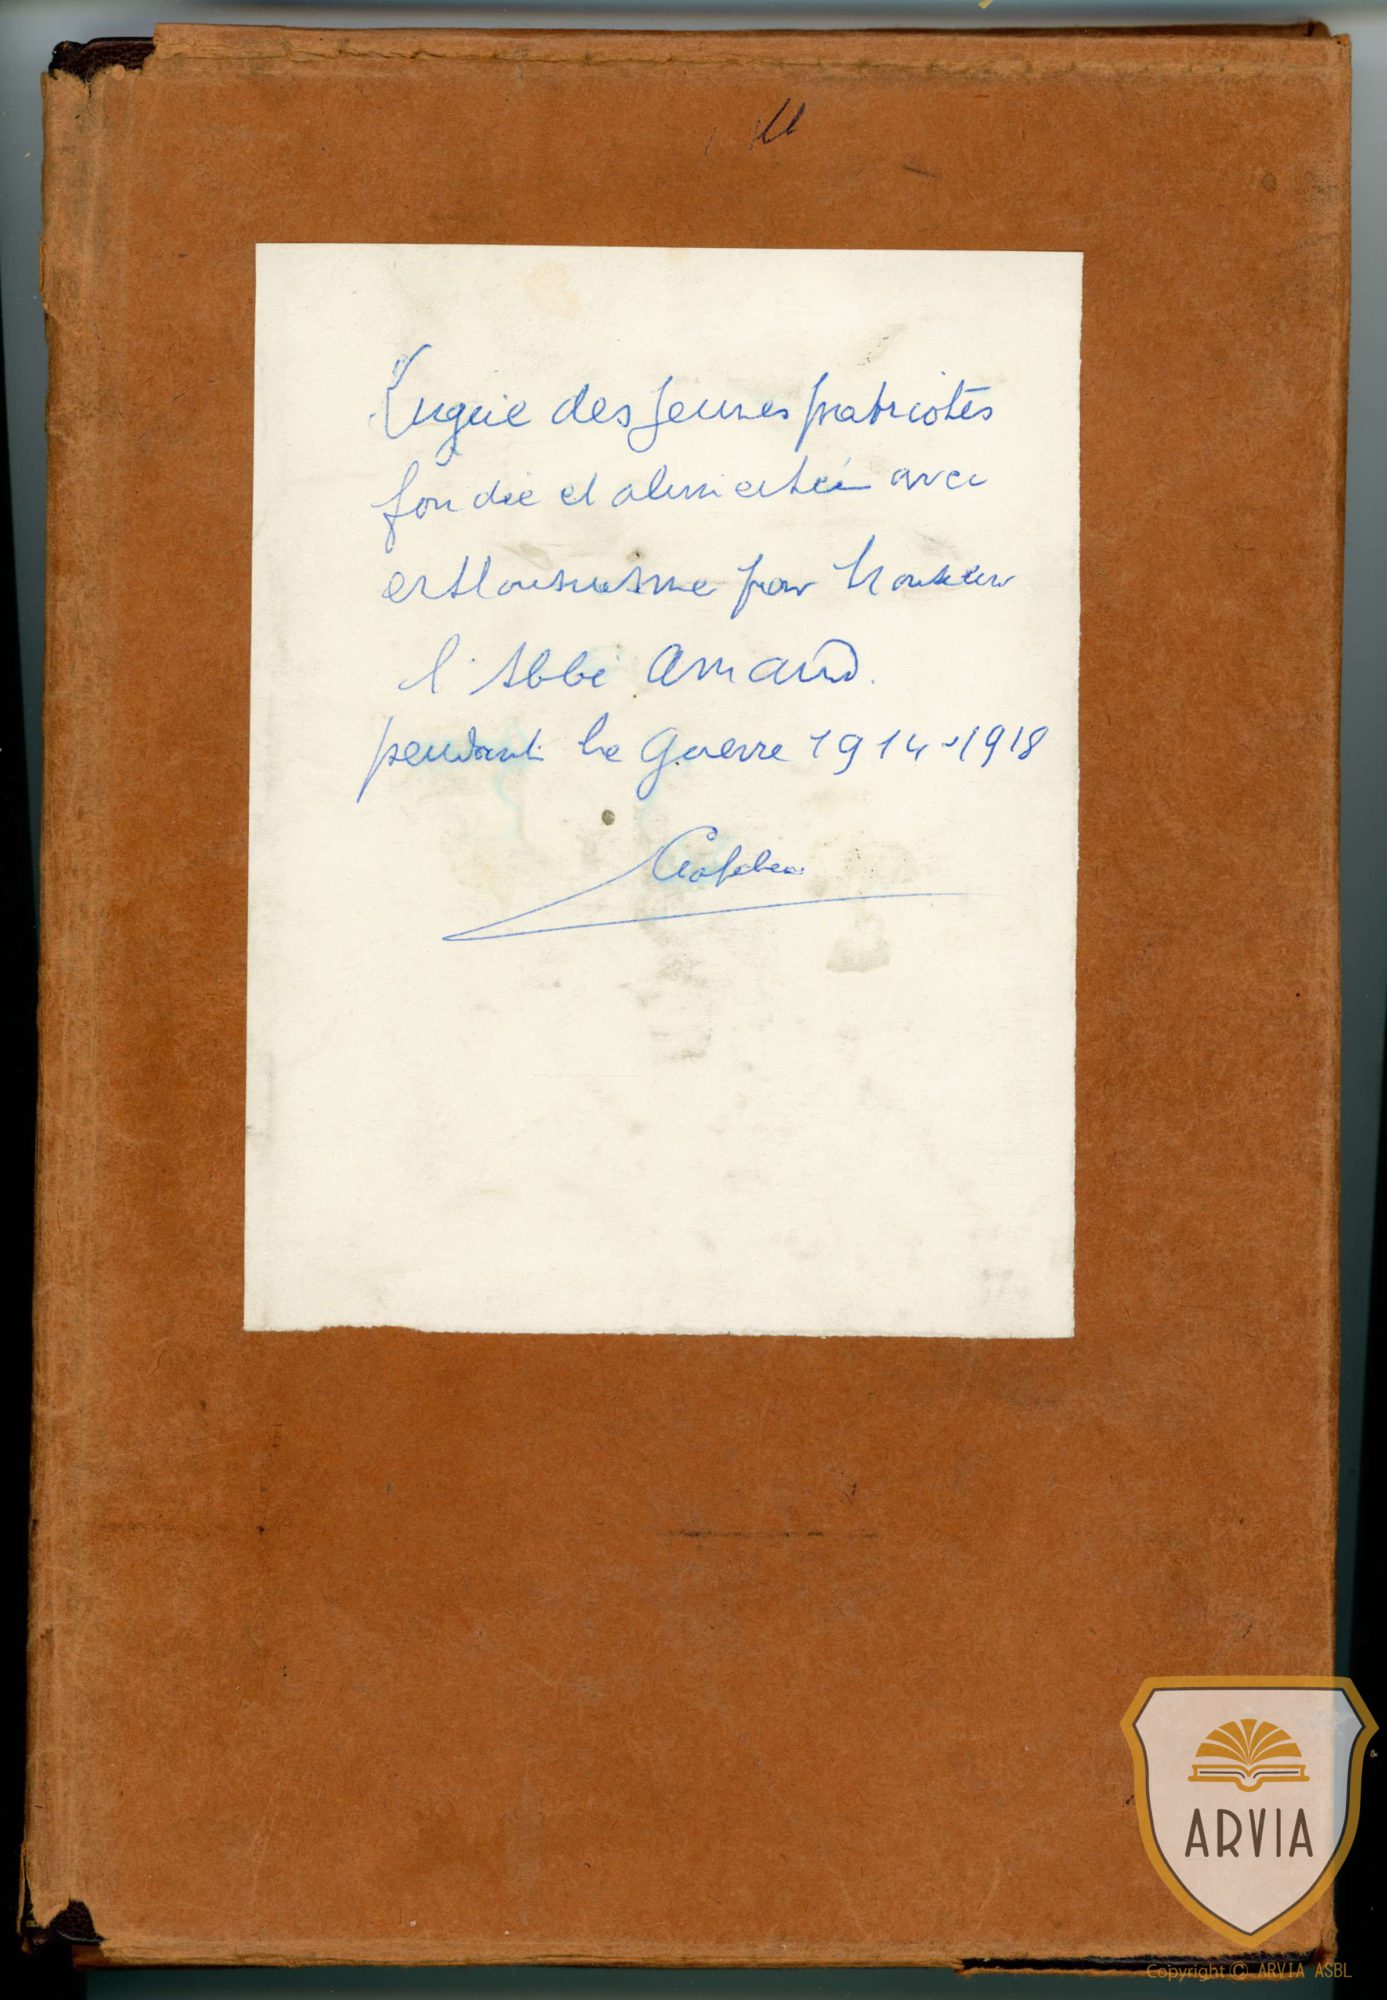 Ligue des jeunes patriotes
fondée et alimentée avec
enthousiasme par Monsieur
l'Abbé Amand.
pendant la Guerre 1914-1918
ARVIA
Copyright © ARVIA ASBL